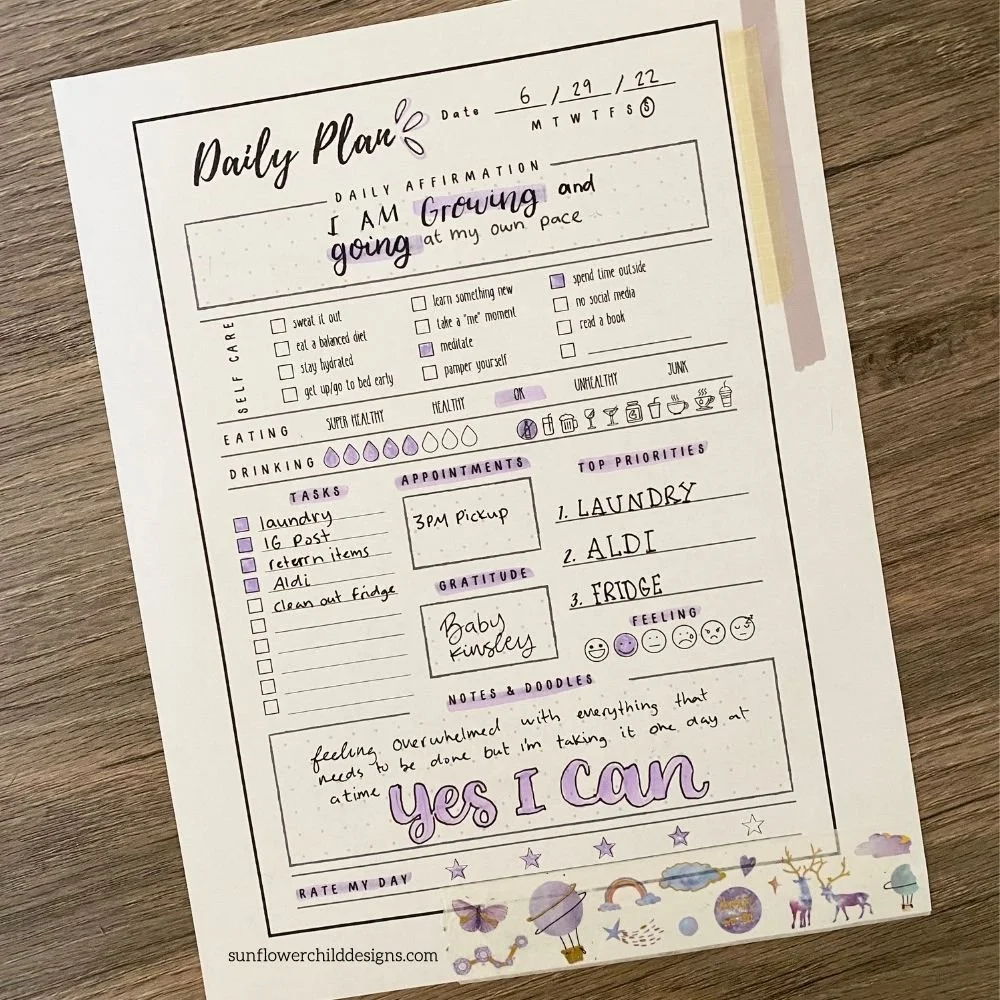 Daily Plan
Date 6 / 29 / 22
M T W T F S S
DAILY AFFIRMATION
I AM Growing and
going at my own pace
SELF CARE
sweat it out
eat a balanced diet
stay hydrated
get up/go to bed early
learn something new
take a "me" moment
meditate
pamper yourself
spend time outside
no social media
read a book
EATING SUPER HEALTHY HEALTHY OK UNHEALTHY JUNK
DRINKING
TASKS
laundry
IG Post
return items
Aldi
clean out fridge
APPOINTMENTS
3PM Pickup
GRATITUDE
Baby
Kinsley
TOP PRIORITIES
1. LAUNDRY
2. ALDI
3. FRIDGE
FEELING
NOTES & DOODLES
feeling overwhelmed with everything that
needs to be done but i'm taking it one day at
a time Yes I Can
RATE MY DAY
sunflowerchilddesigns.com